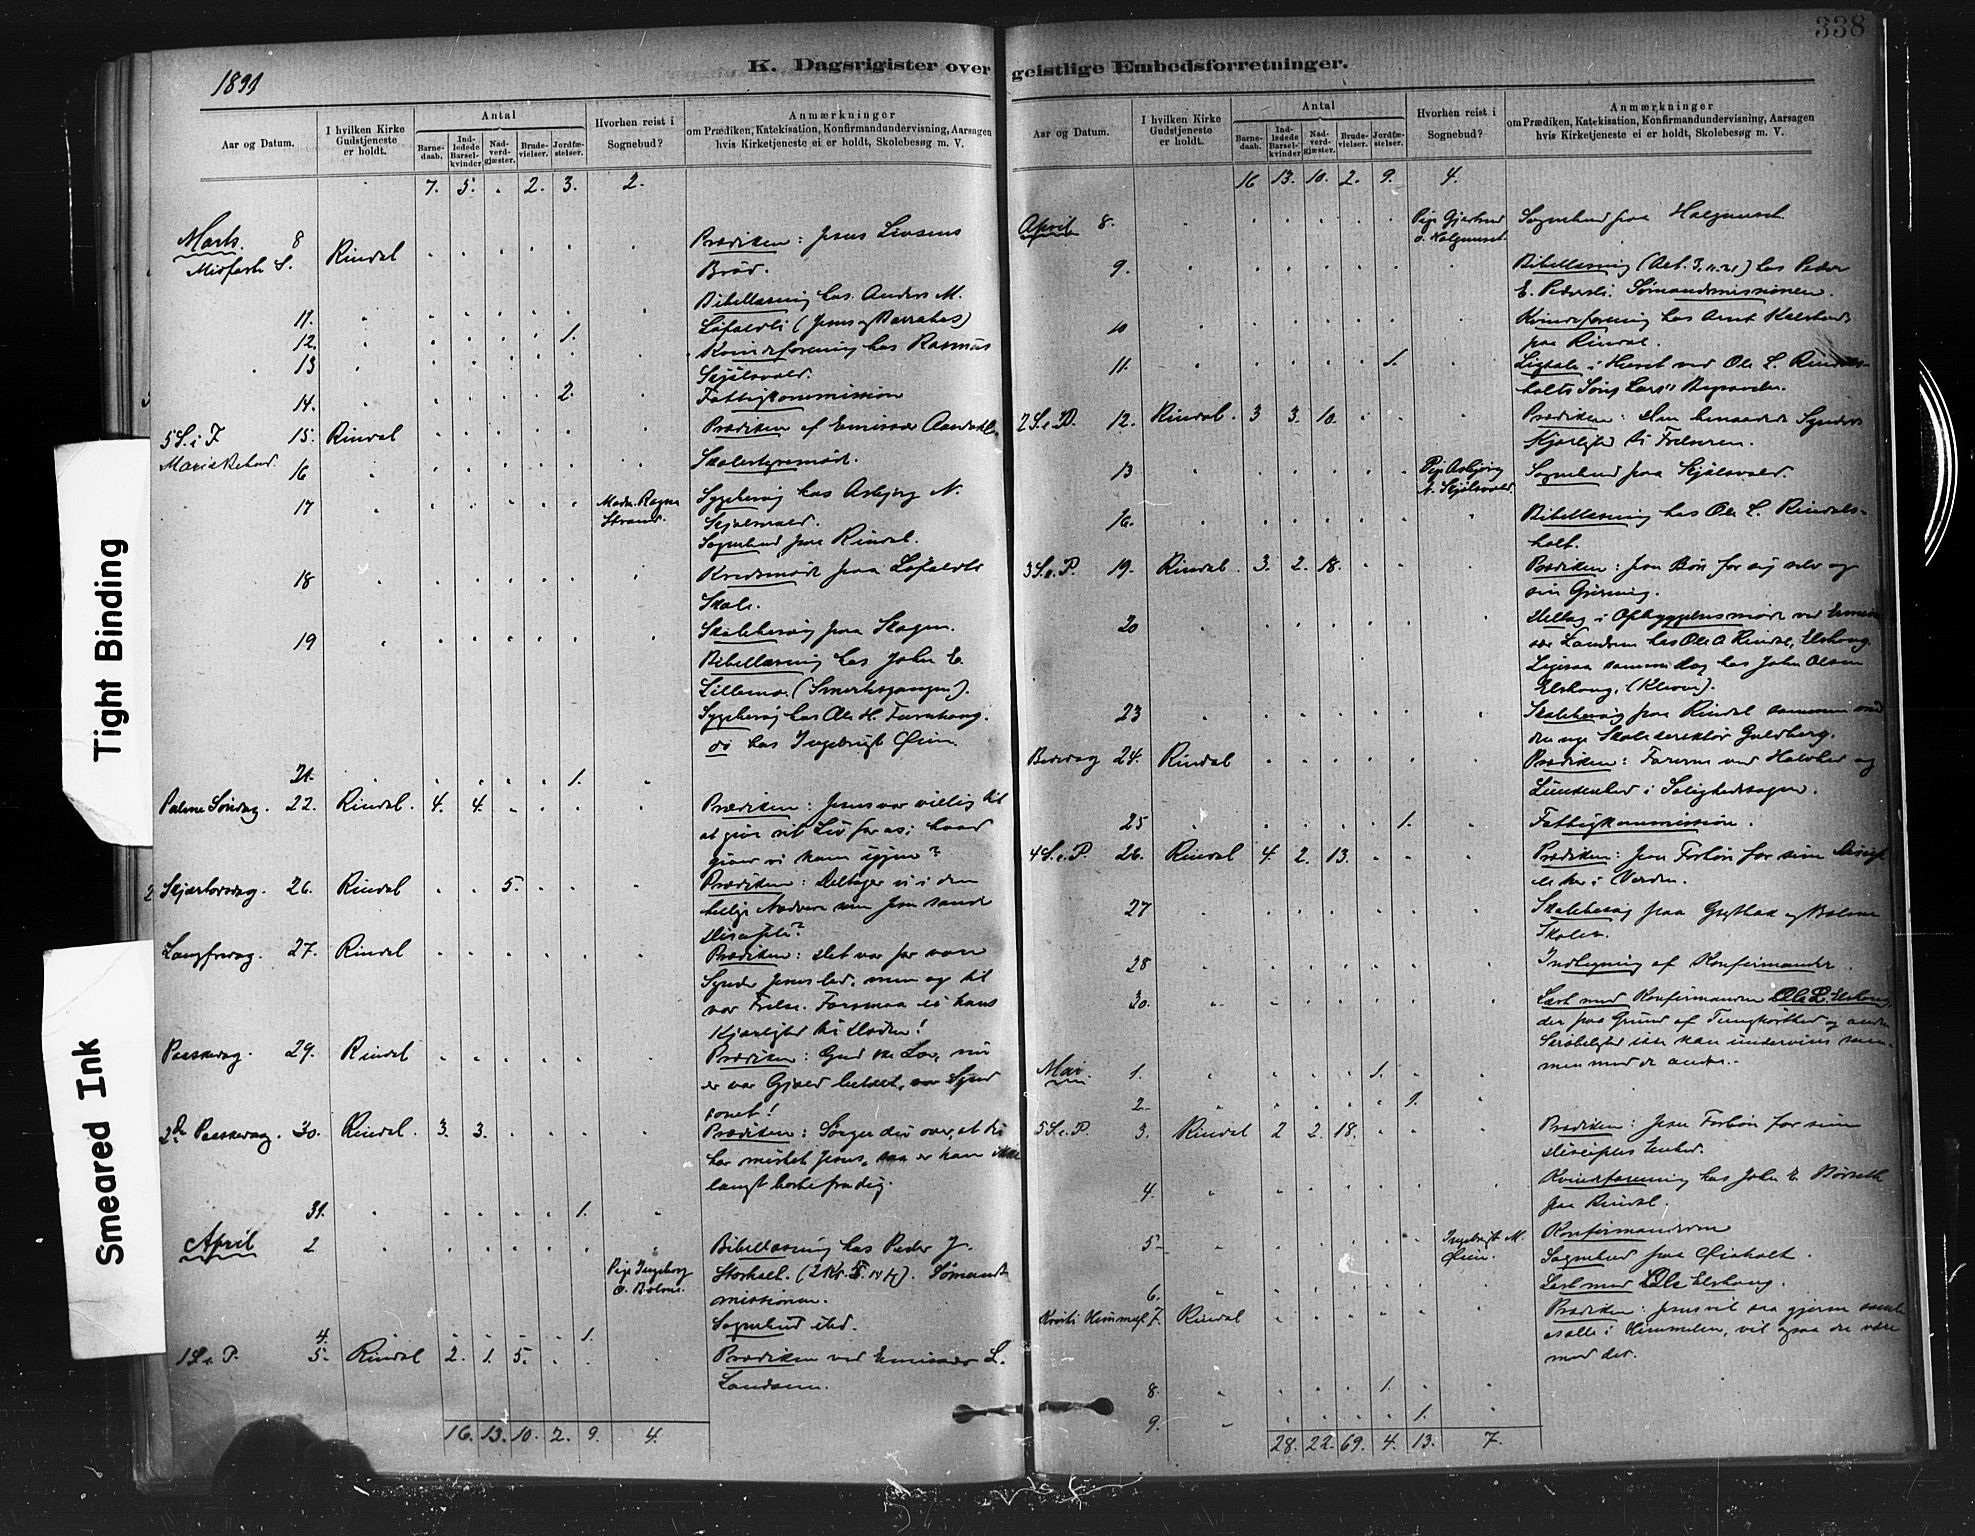 338
1891
K. Dagsrigister over geistlige Embedsforretninger.
Aar og Datum.
I hvilken Kirke Gudstjeneste er holdt.
Antal
Barnedaab.
Indledede Barselkvinder
Nadverdgjæster.
Brudevielser.
Jordfæstelser.
Hvorhen reist i Sognebud?
Anmærkninger
om Prædiken, Katekisation, Konfirmandundervisning, Aarsagen
hvis Kirketjeneste ei er holdt, Skolebesøg m. V.
7. 5. . 2. 3. 2.
Marts. 8 Rindal Prædiken: Jesus Livsens
Midfaste S. Brød.
11. Bibellæsning hos Anders M.
Løfaldli (Jesus og Barrabas)
12. 1. Kvindeforening hos Rasmus
13 Skjølsvold.
14. 2. Fattigkommission
5 S. i F. 15. Rindal Prædiken af Emissær Aandahl.
Mariæ Bebud. 16 Skolestyremøde.
17 Madm. Ragna Strand. Sygebesøg hos Asbjørg N.
Skjølsvold.
Sognebud paa Rindal.
18 Kredsmøde paa Løfaldli
Skole.
19 Skolebesøg paa Skogen.
Bibellæsning hos John E.
Lillemo. (Smertesgangen).
Sygebesøg hos Ole H.
og hos Ingebrigt Øien.
21. 1.
Palme Søndag. 22. Rindal. 4. 4. Prædiken: Jesus var villig til
at give sit Liv for os; hvad
giver vi ham igjen?
Skjærtorsdag. 26. Rindal 5. Prædiken: Deltager vi i den
hellige Nadvere som Jesu sande
Disciple?
Langfredag. 27. Rindal Prædiken: Det var for vore
Synder Jesus led, men og til
vor Frelse. Forsmaa ei hans
Kjærlighed til Døden!
Paaskedag. 29. Rindal Prædiken: Gud ske Lov, nu
er vor Gjæld betalt, vor Synd
sonet!
2d Paaskedag. 30. Rindal. 3. 3. Prædiken: Sørger du over, at du
har mistet Jesus, saa er han ikke
langt borte fra dig.
31. 1.
April 2 Pige Ingeborg O. Bolme. Bibellæsning hos Peder J.
Storholt. Sømands-
missionen.
Sognebud sted.
4. 1.
1 S. e P. 5. Rindal 2. 1. 5. Prædiken ved Emissær L.
Landsem.
16. 13. 10. 2. 9. 4.
Aar og Datum.
I hvilken Kirke Gudstjeneste er holdt.
Antal
Barnedaab.
Indledede Barselkvinder
Nadverdgjæster.
Brudevielser.
Jordfæstelser.
Hvorhen reist i Sognebud?
Anmærkninger
om Prædiken, Katekisation, Konfirmandundervisning, Aarsagen
hvis Kirketjeneste ei er holdt, Skolebesøg m. V.
16 13. 10. 2. 9. 4.
April 8. Pige Gjertrud o. Halgunset. Sognebud paa Halgunset.
9. Bibellæsning (Act. 3, 11-21) hos Peder
E. Pedersli. Sømandsmissionen.
10 Kvindeforening hos Arnt Kalstad
paa Rindal.
11. 1. Ligtale i Huset ved Ole L. Rindals-
holts Søns Lars's Begravelse.
2 S. e P. 12. Rindal. 3 3. 10. Prædiken: Den benaadede Synders
Kjærlighed til Frelseren.
13 Pige Asbjørg N. Skjølsvold. Sognebud paa Skjølsvold.
16. Bibellæsning hos Ole L. Rindals-
holt.
3 S. e. P. 19. Rindal. 3. 2. 18. Prædiken: Jesu Bøn for sig selv og
sin Gjerning.
20 Deltog i Opbyggelsesmøde ved Emis-
sær Landsem hos Ole O. Rindal, Elshaug.
Ligesaa samme dag hos John Olsen
Elshaug.
23 Skolebesøg paa Rindal sammen med
den nye Skoledirektør Guldberg.
Bededag 24. Rindal Prædiken: Farerne ved Halvhed og
Lunkenhed i Salighedssagen.
25 1. Fattigkommission.
4 S. e. P. 26. Rindal 4. 2. 13. Prædiken: Jesu Forbøn for sine Discip-
le her i Verden.
27 Skolebesøg paa og Bolme
Skoler.
28 Indlegning af Konfirmander.
30. Læst med Konfirmanden Ole L. Elshaug,
der paa Grund af Tunghørthed og anden
Skrøbelighed ikke kan undervises sam-
men med de andre.
Mai 1. 1.
2. 1.
5 S. e. P. 3. Rindal 2 2. 18. Prædiken: Jesu Forbøn for sine
Disciples Enhed.
4. Kvindeforening hos John E. Børseth
paa Rindal.
5 Ingebrigt M. Øien. Konfirmanderne
Sognebud paa
6. Læst med Ole Elshaug.
Kristi Himmelf. 7. Rindal Prædiken: Jesus vil saa gjerne samle
os alle i Himmelen, vil ogsaa du være
med der.
8. 1.
9. 1.
28. 22. 69. 4. 13. 7.
Tight Binding
Smeared Ink